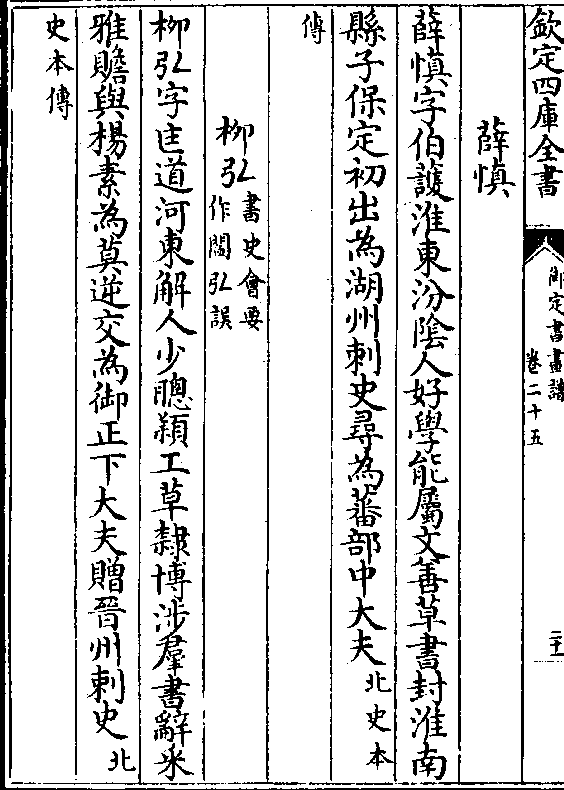 欽定四庫全書
御定書畫譜
卷二十五
二十一
薛慎
薛慎字伯護淮東汾陰人好學能屬文善草書封淮南
縣子保定初出為湖州刺史尋為蕃部中大夫北史本
傳
柳弘書史會要作閻弘誤
柳弘字匡道河東解人少聰穎工草隸博涉羣書辭采
雅贍與楊素為莫逆交為御正下大夫贈晉州刺史北
史本傳